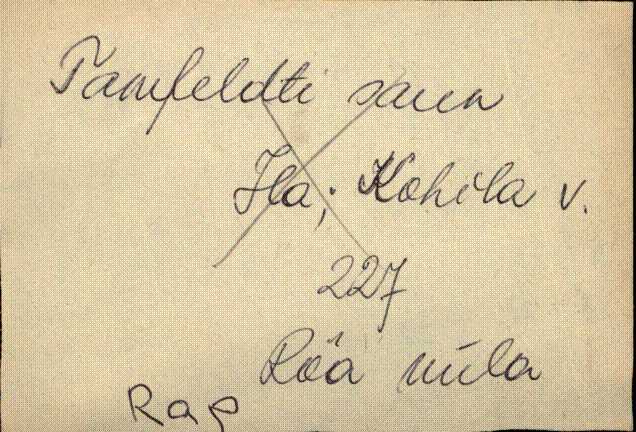 Tamfeldti saun
Ha; Kohila v.
227
Röa küla
Rap